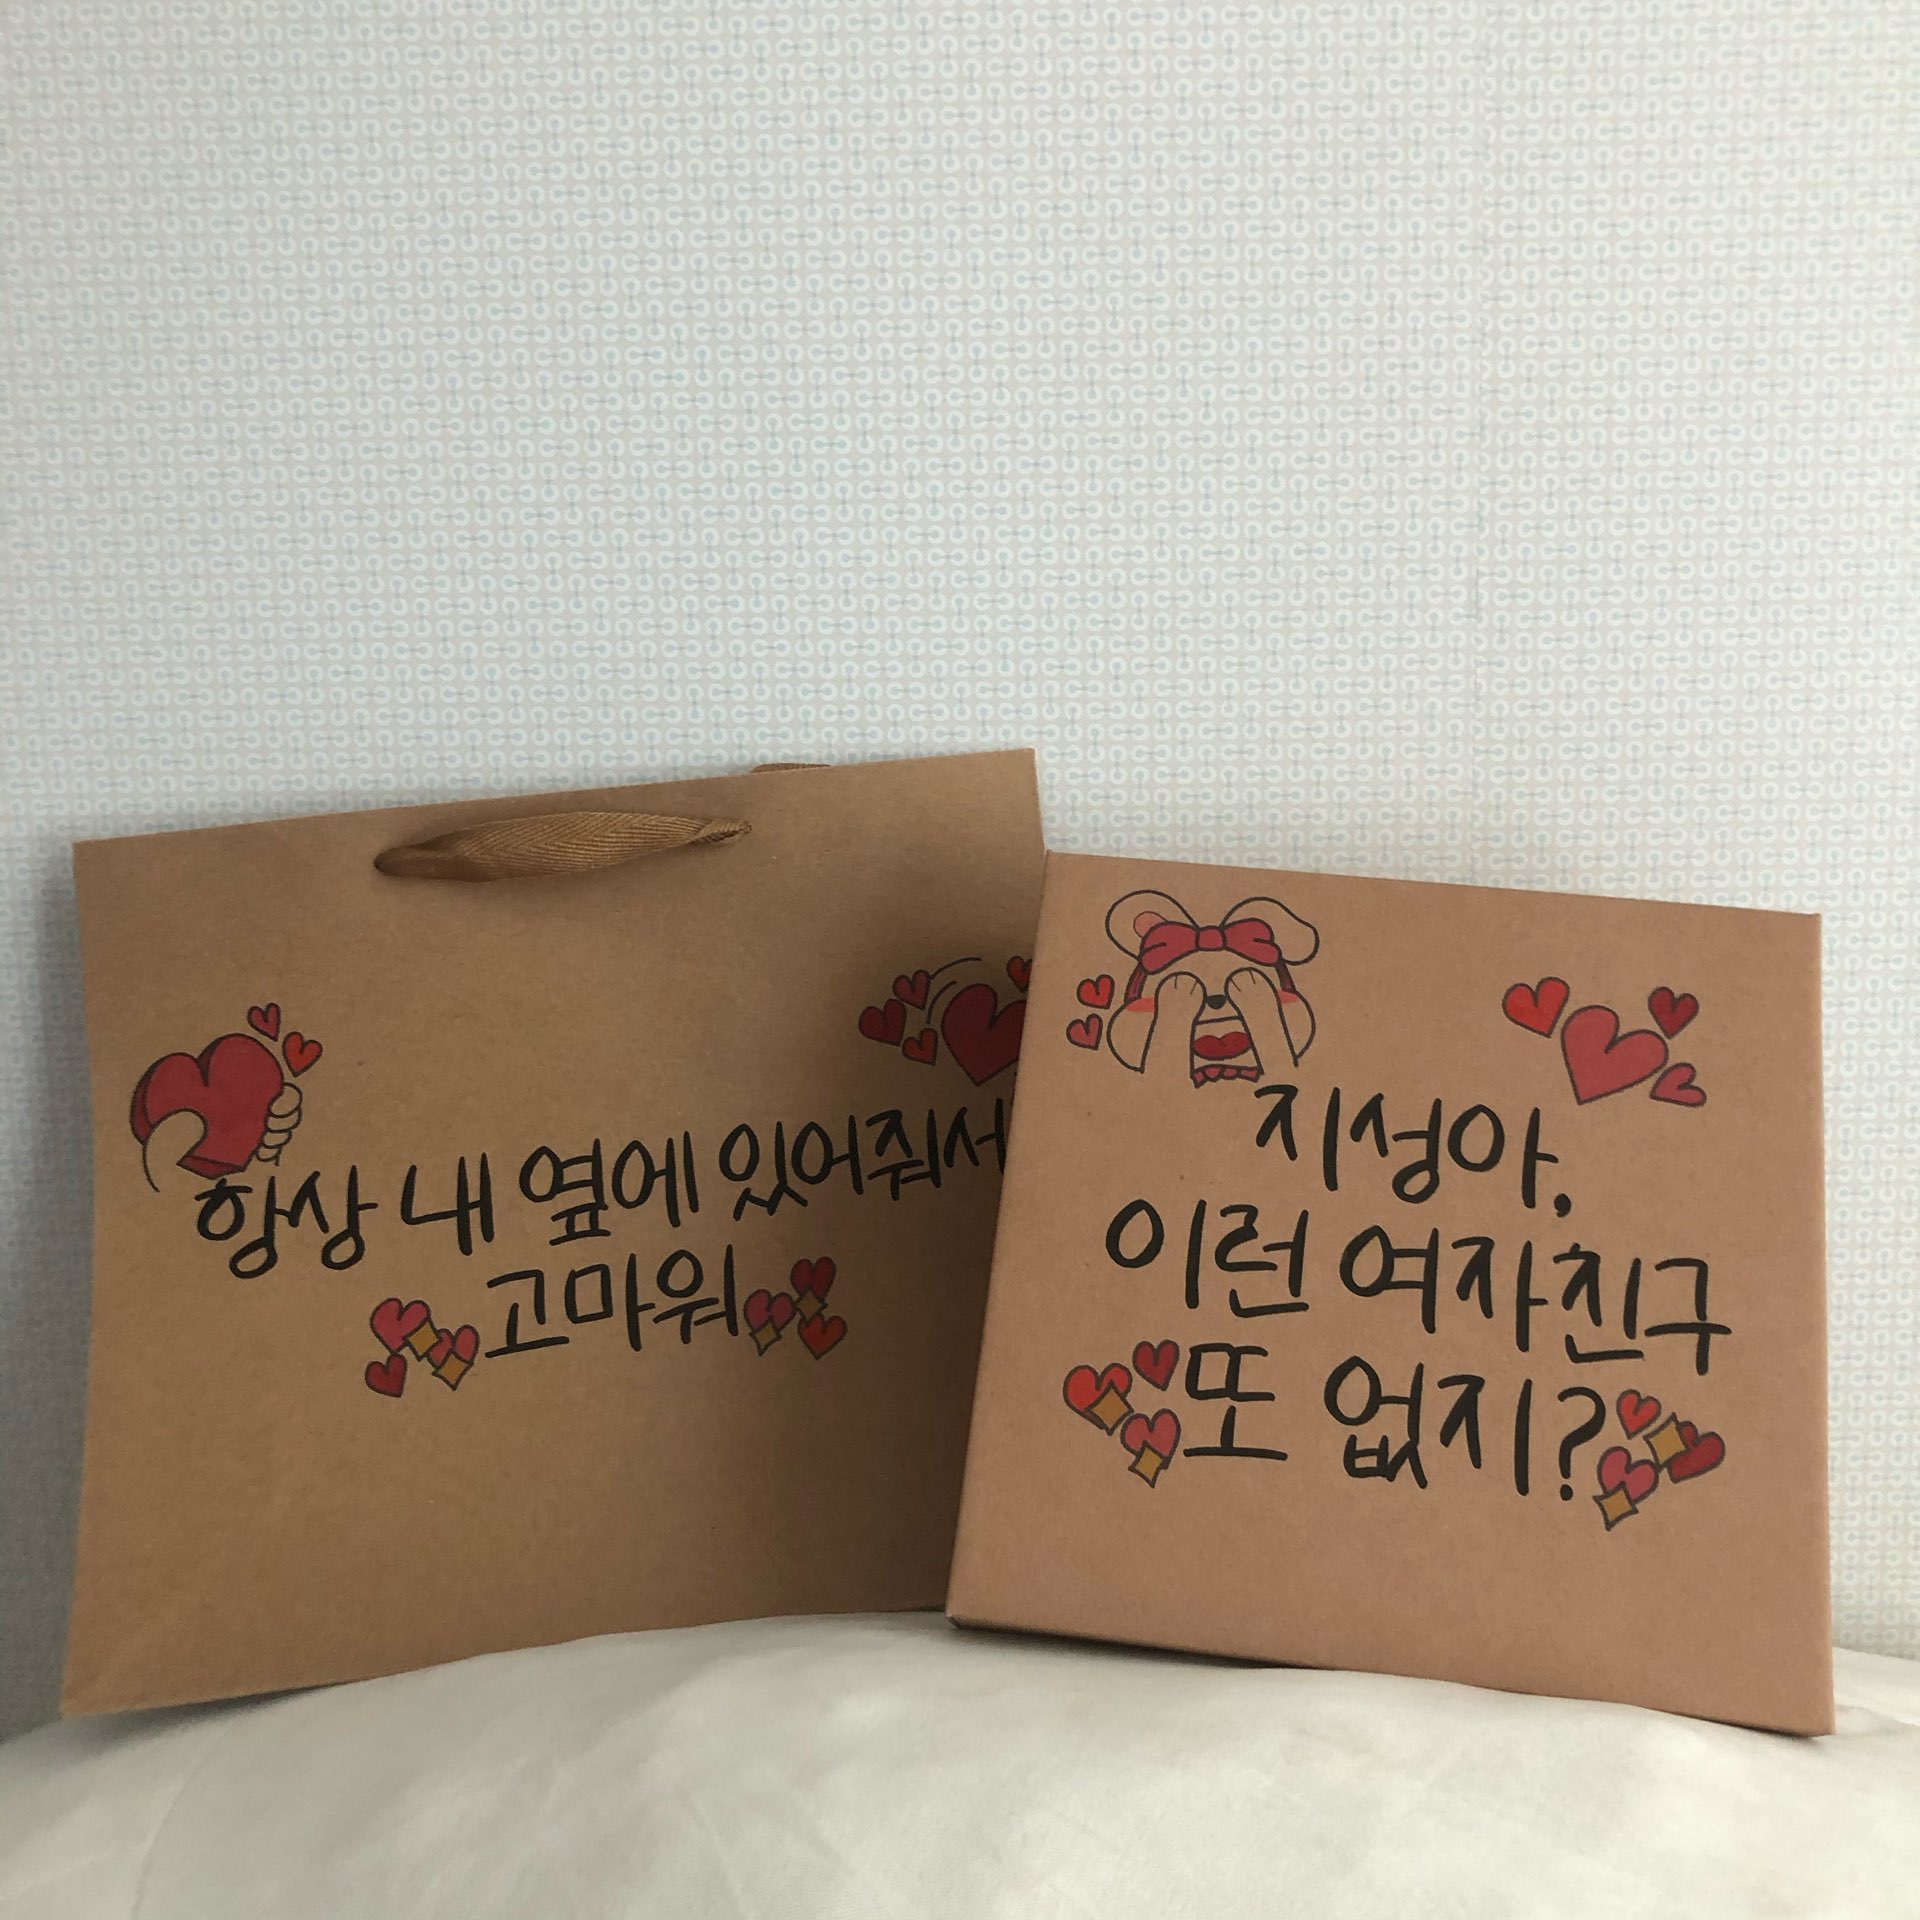 항상 내 옆에 있어줘서
고마워
지성아,
이런 여자친구
또 없지?